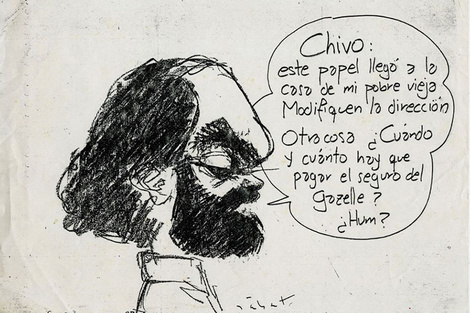 Chivo:
este papel llegó a la
casa de mi pobre vieja
Modifiquen la dirección
Otra cosa ¿Cuándo
y cuánto hay que
pagar el seguro del
Gazelle?
¿Hum?